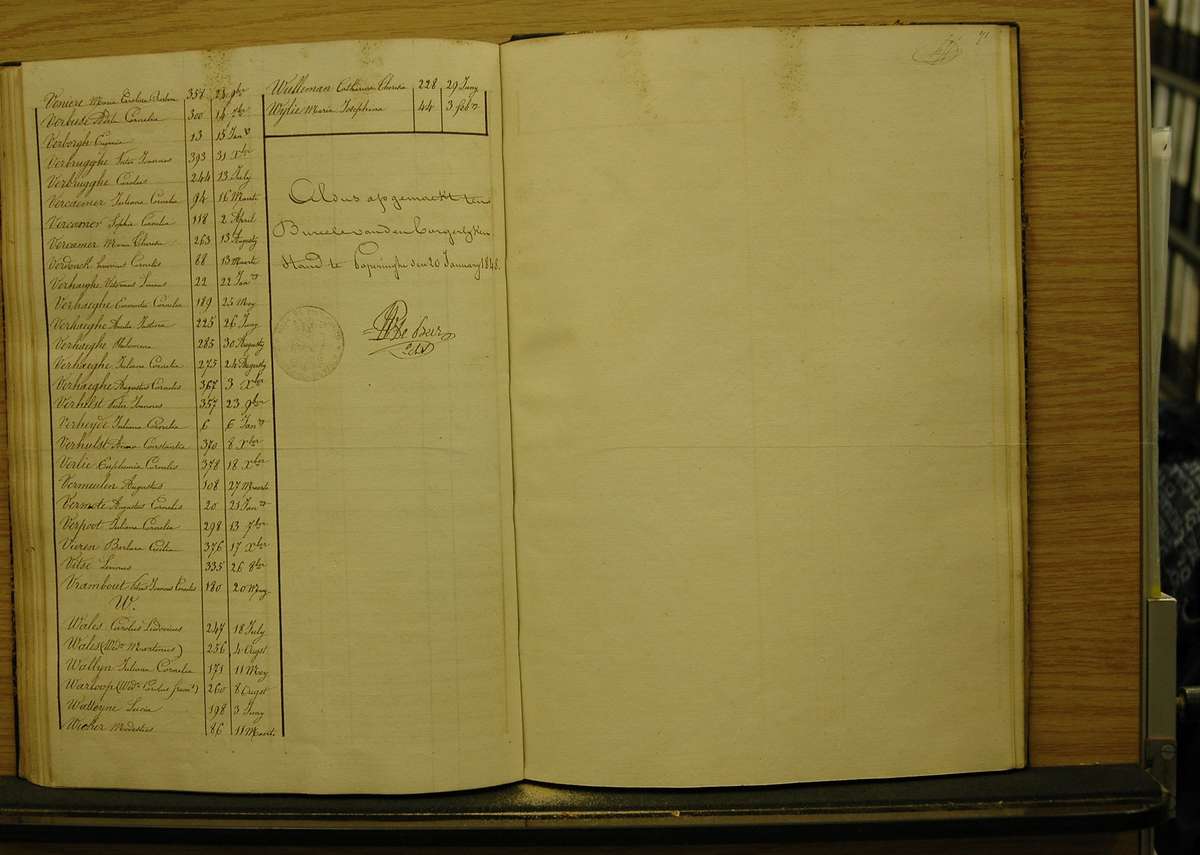 Veniere Maria Carolina Barbara 357 23 9ber
Verbeke Cornelia 300 14 7ber
Verborgh Eugenia 13 15 Janry
Verbrugghe Pieter Joannes 393 31 Xber
Verbrugghe Carolus 244 13 July
Vercaemer Juliana Cornelia 94 16 Maart
Vercaemer Sophia Cornelia 118 2 April
Vercaemer Maria Theresia 263 13 Augusty
Verdonck Cornelis 88 13 Maarte
Verhaeghe 22 22 Janry
Verhaeghe Cornelia 189 25 Mey
Verhaeghe Amelia Justina 225 26 Juny
Verhaeghe Philomena 285 30 Augusty
Verhaeghe Juliana Cornelia 275 24 Augusty
Verhaeghe Augustus Cornelis 367 3 Xber
Verhulst Pieter Joannes 357 23 9ber
Verheyde Juliana Cornelia 6 6 Janry
Verhulst Anna Constantia 370 8 Xber
Verlie Euphemia Cornelis 378 18 Xber
Vermeulen Augustus 108 27 Maarte
Vermote Augustus Cornelis 20 21 Janry
Verpoot Juliana Cornelia 298 13 7ber
Vieren Barbara Cecilia 376 17 Xber
Vitse 335 26 8ber
Vrambout Pieter Joannes Cornelis 180 20 Mey
W.
Wales Carolus Ludovicus 247 18 July
Wales (Wed. Martinus) 256 4 Augst
Wallyn Juliana Cornelia 171 11 Mey
Warloop (Wed. Carolus frans) 260 8 Augst
Watteyne Lucia 198 3 Juny
Wicher Modestus 86 11 Maarte
Wulleman Catharina Theresia 228 29 Juny
Wylie Maria Josephina 44 3 feb.ry
Aldus afgemaekt ten
Bureele van den Burgerlyken
Stand te Poperinghe den 20 January 1848.
De Baer
71